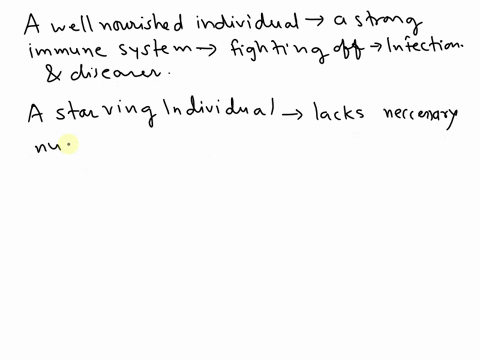 A well nourished individual → a strong
immune system → fighting off → Infection.
& diseases.
A starving Individual → lacks neccenary
nu